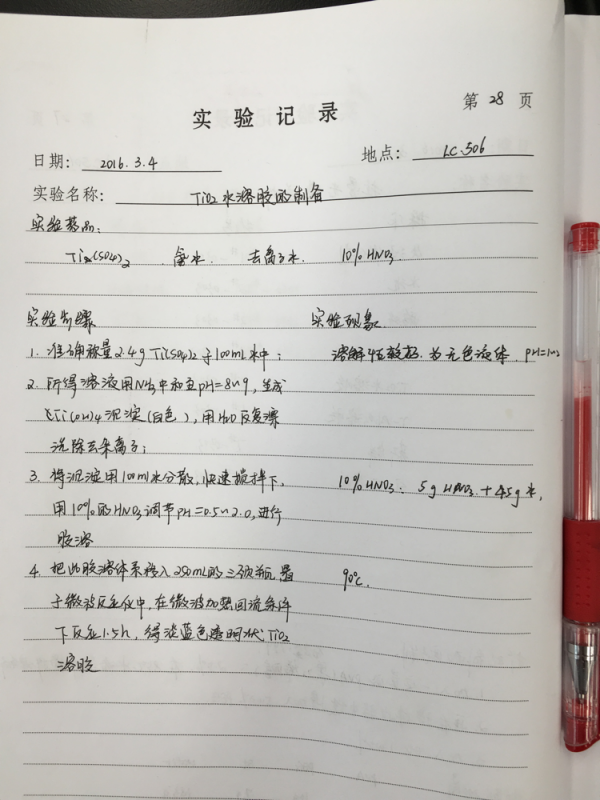 第 28 页
实验记录
日期: 2016.3.4 地点: LC-506
实验名称: TiO2水溶胶的制备
实验药品:
Ti(SO4)2 氨水. 去离子水. 10% HNO3
实验步骤 实验现象
1. 准确称量2.4g Ti(SO4)2于100mL水中; 溶解性较好. 为无色液体. pH=1~2
2. 所得溶液用NH3中和至pH=8~9, 生成
Ti(OH)4沉淀(白色), 用H2O反复漂
洗除去杂离子;
3. 将沉淀用100ml水分散, 快速搅拌下, 10% HNO3: 5g HNO3 + 45g 水,
用10%的HNO3调节pH=0.5~2.0, 进行
胶溶
4. 把此胶溶体系移入250mL的三颈瓶, 置 90℃.
于微波反应仪中, 在微波加热回流条件
下反应1.5h, 得淡蓝色透明状TiO2
溶胶